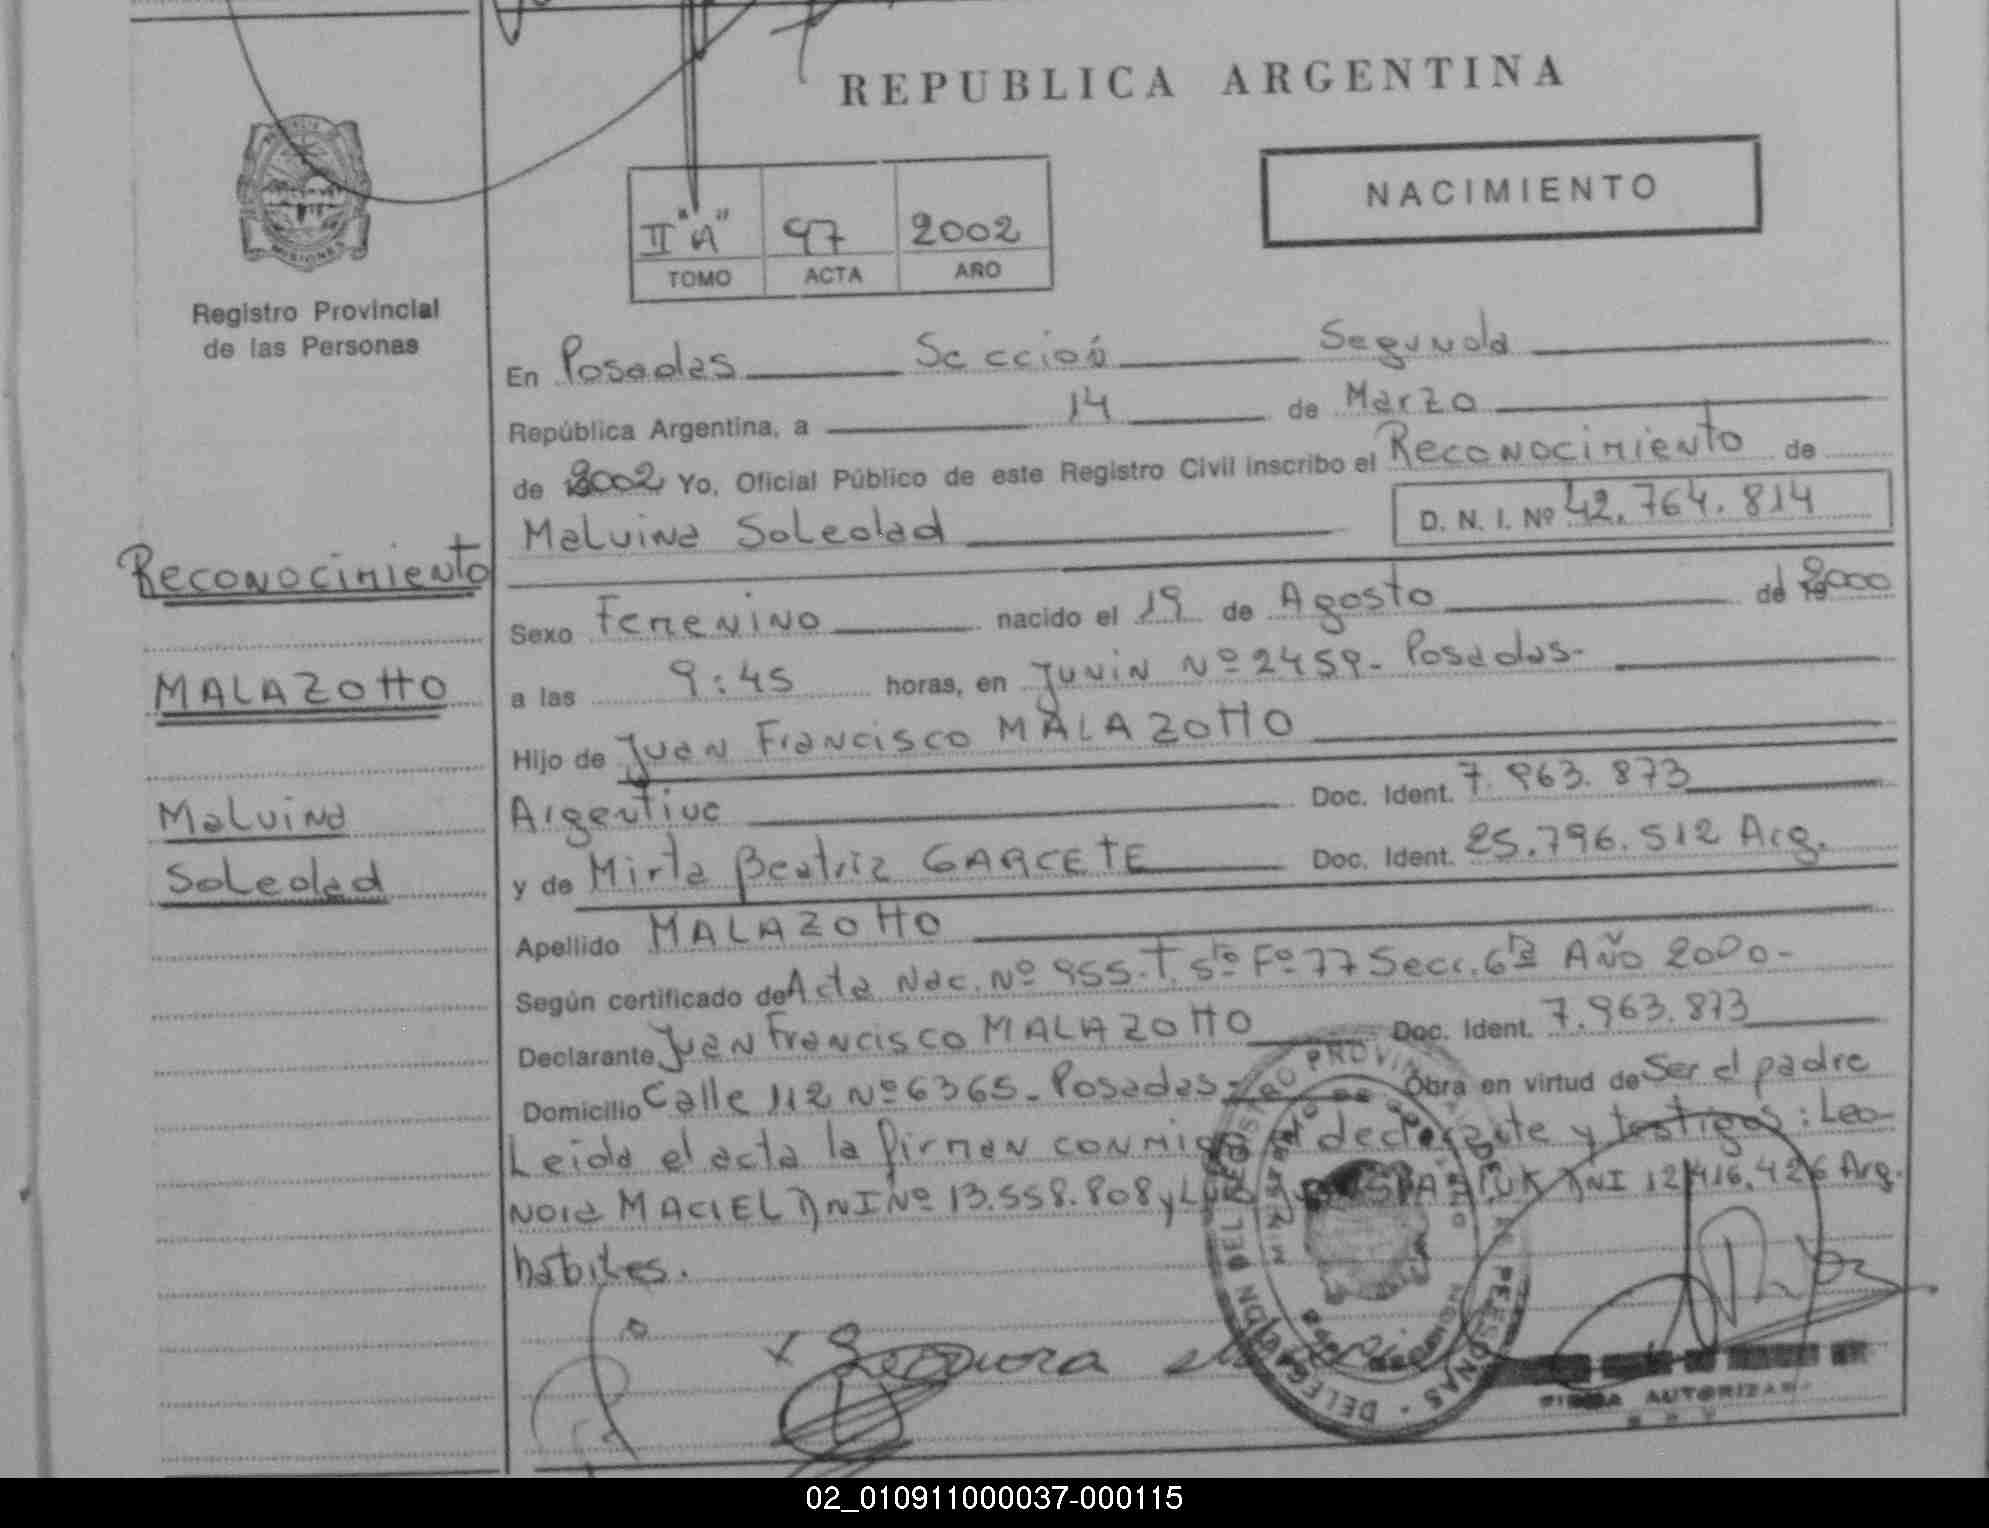 REPUBLICA ARGENTINA
NACIMIENTO
II "A" 97 2002
TOMO ACTA AÑO
MISIONES
Registro Provincial
de las Personas
En Posadas Sección Segunda
República Argentina, a 14 de Marzo
de 2002 Yo, Oficial Público de este Registro Civil inscribo el Reconocimiento de
Malvina Soledad D. N. I. Nº 42.764.814
Reconocimiento
MALAZOTTO
Malvina
Soledad
Sexo Femenino nacido el 19 de Agosto de 2000
a las 9:45 horas, en Junin Nº 2459- Posadas-
Hijo de Juan Francisco MALAZOTTO
Argentino Doc. Ident. 7.963.873
y de Mirta Beatriz GARCETE Doc. Ident. 25.796.512 Arg.
Apellido MALAZOTTO
Según certificado de Acta Nac. Nº 955-T. 5to Fº 77 Secc. 6ta Año 2000-
Declarante Juan Francisco MALAZOTTO Doc. Ident. 7.963.873
Domicilio Calle 112 Nº 6365- Posadas- Obra en virtud de Ser el padre
Leida el acta la firman conmigo el declarante y testigos: Leo-
nora MACIEL DNI Nº 13.558.808 y DNI 12.416.426 Arg.
habiles.
FIRMA AUTORIZADA
02_010911000037-000115